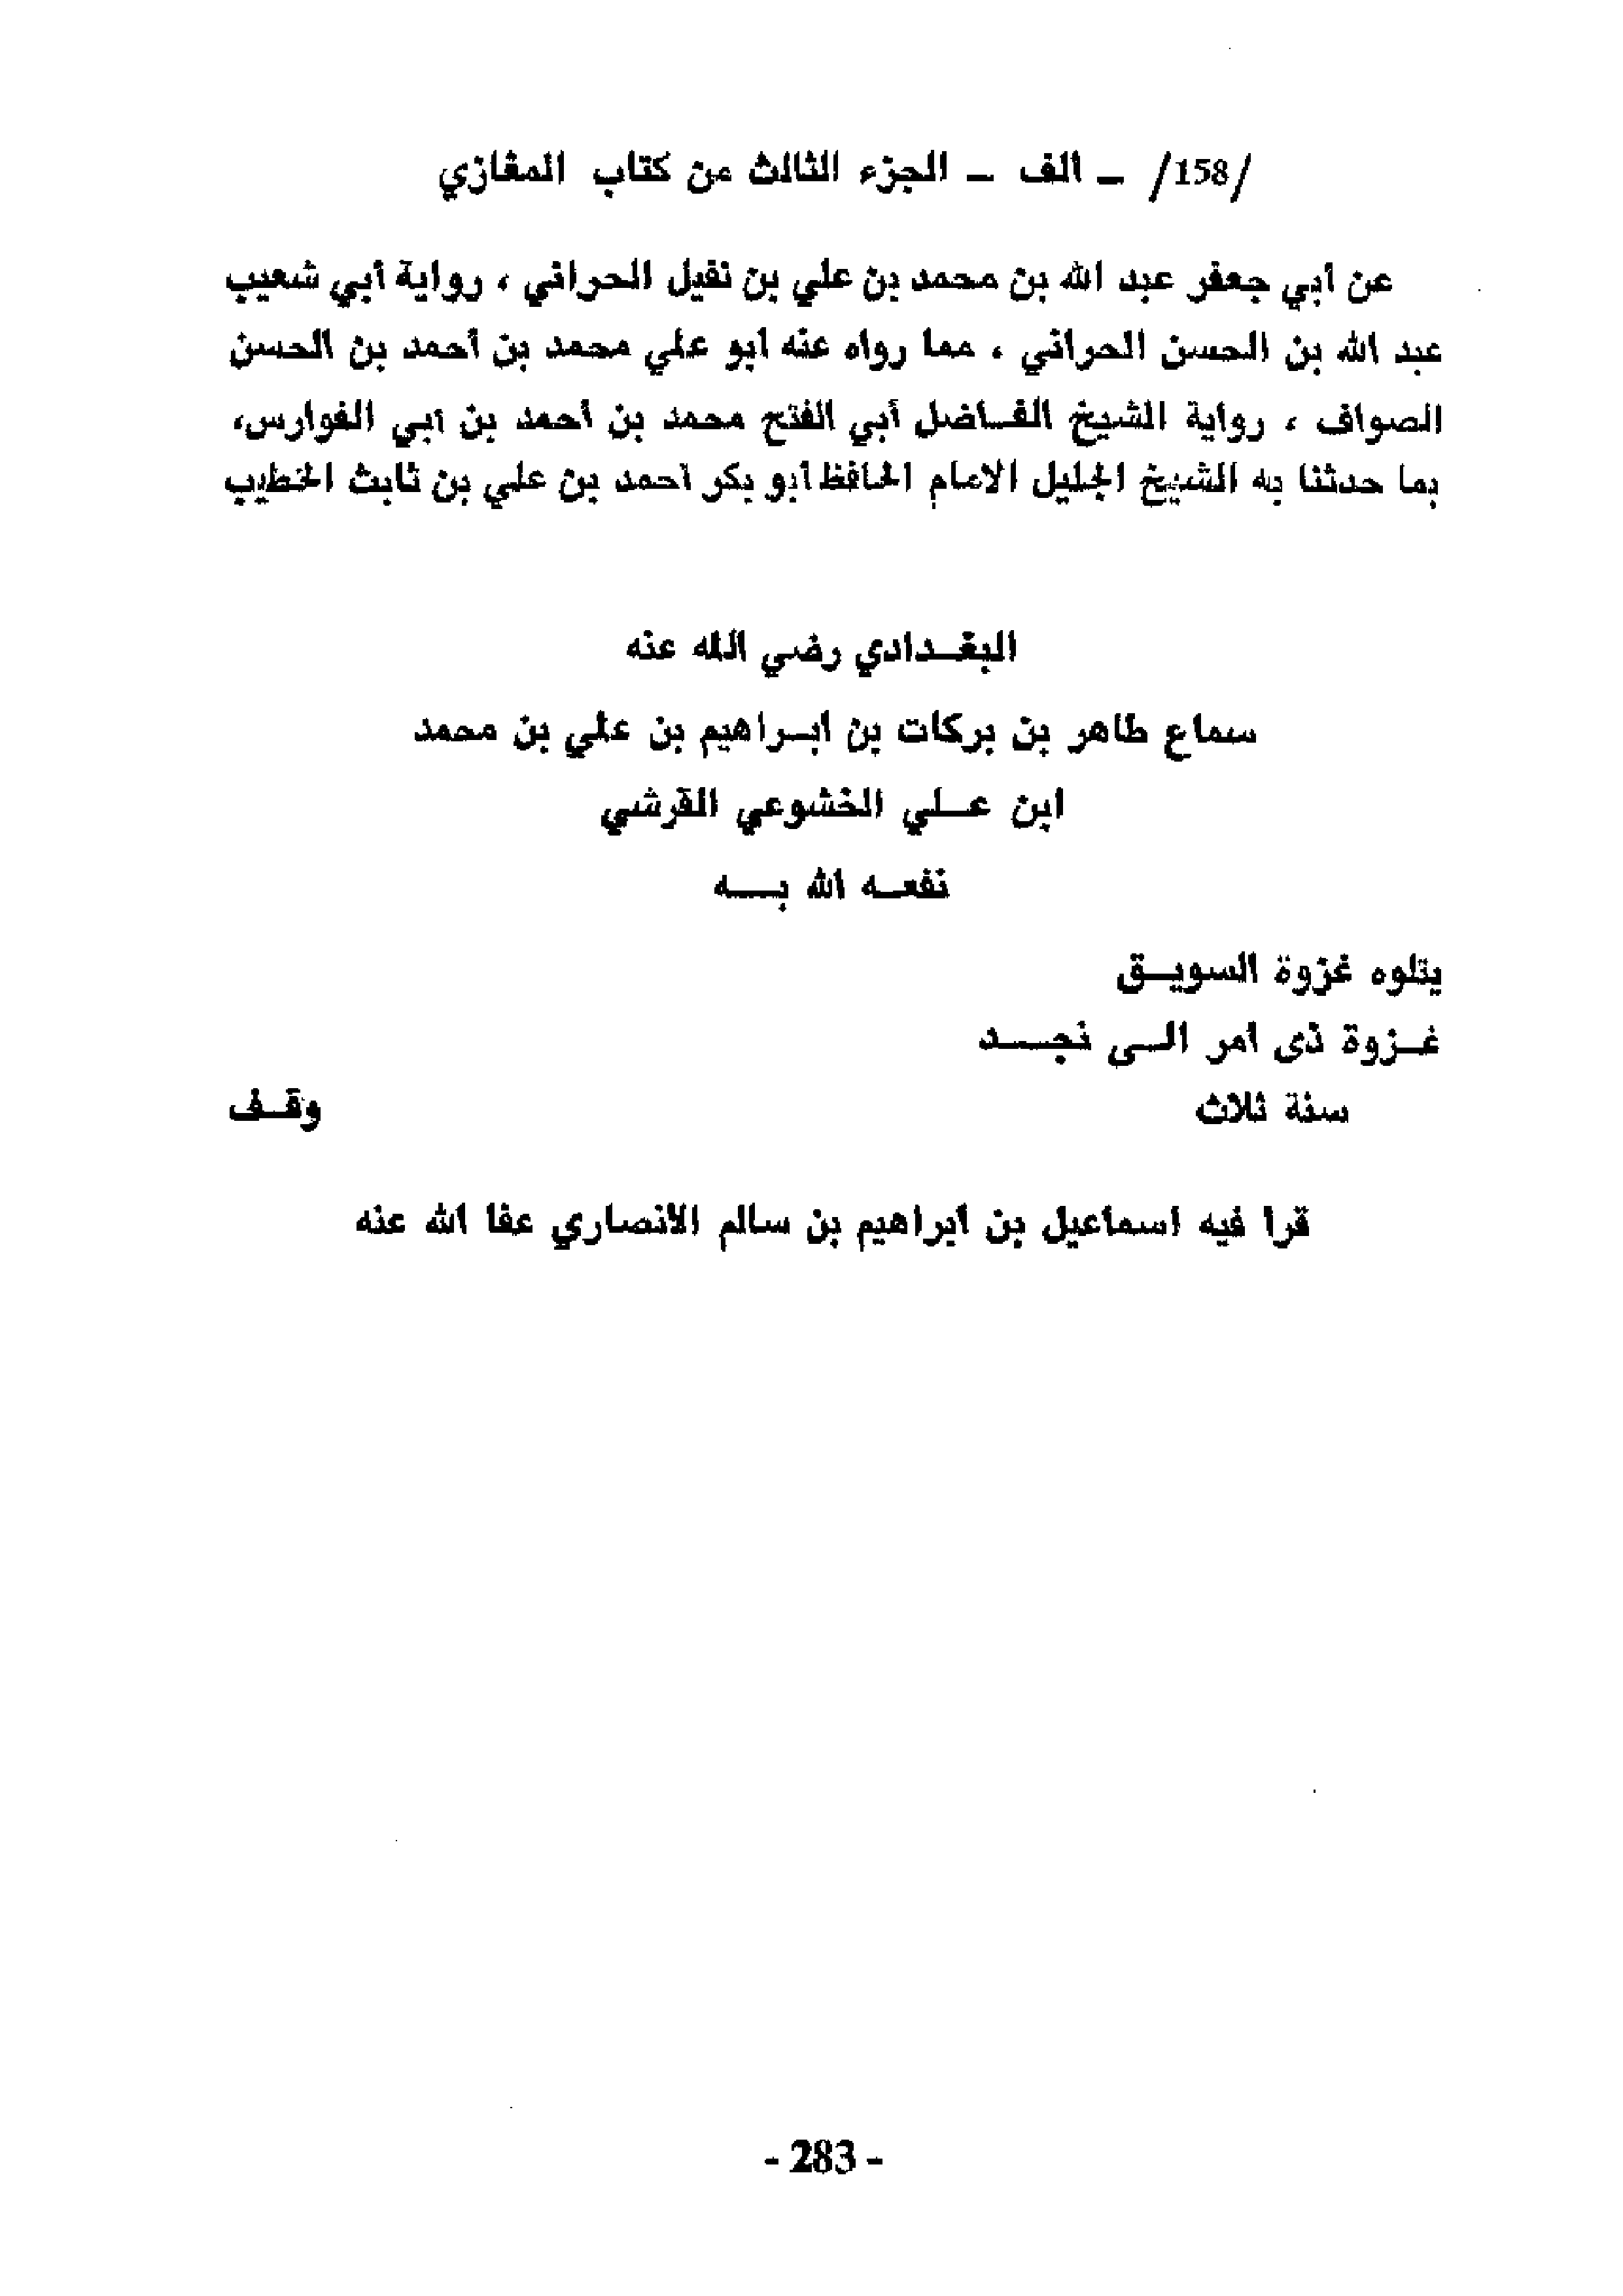 /158/ – الف – الجزء الثالث من كتاب المغازي
عن أبي جعفر عبد الله بن محمد بن علي بن نفيل الحراني ، رواية أبي شعيب
عبد الله بن الحسن الحراني ، مما رواه عنه ابو علي محمد بن أحمد بن الحسن
الصواف ، رواية الشيخ الفـاضل أبي الفتح محمد بن أحمد بن ابي الفوارس،
بما حدثنا به الشيخ الجليل الامام الحافظ ابو بكر احمد بن علي بن ثابت الخطيب
البغـدادي رضي الله عنه
سماع طاهر بن بركات بن ابـراهيم بن علي بن محمد
ابن عـلي الخشوعي القرشي
نفعـه الله بـه
يتلوه غزوة السويـق
غـزوة ذى امر الـى نجـد
سنة ثلاث وقـف
قرا فيه اسماعيل بن ابراهيم بن سالم الانصاري عفا الله عنه
- 283 -